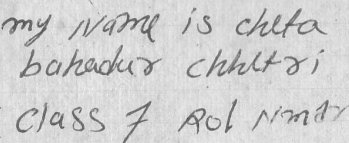 my Name is cheta
bahadur chhetri
class 7 Rol